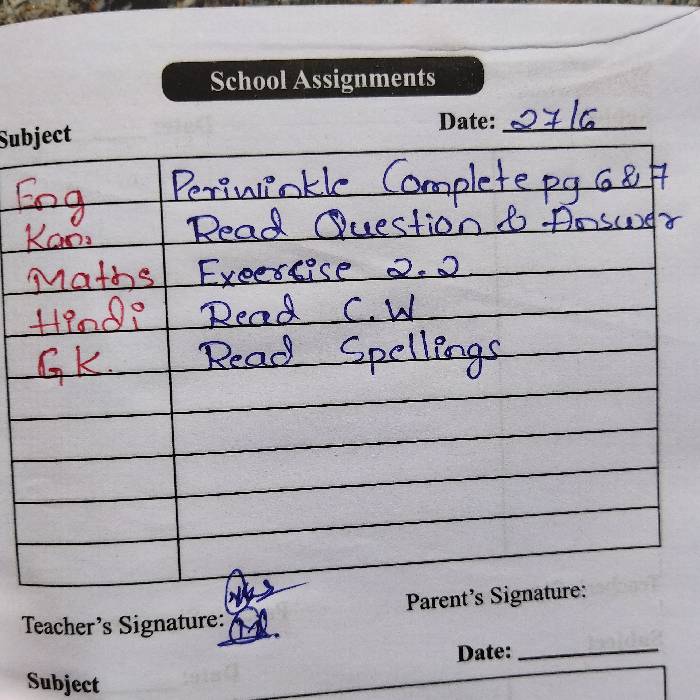 School Assignments
Subject Date: 27/6
Eng Periwinkle Complete pg 6 & 7
Kan. Read Question & Answer
Maths Exeercise 2.2
Hindi Read C.W
G.K. Read Spellings
Teacher's Signature: Parent's Signature:
Date:
Subject